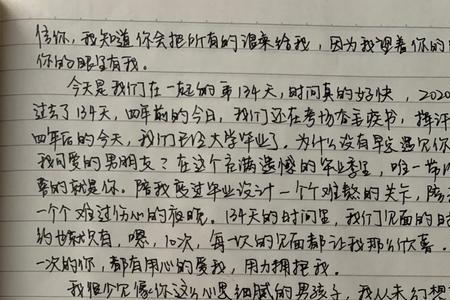 信你，我知道你会把所有的温柔给我，因为我望着你的眼
你的眼里有我。
今天是我们在一起的第134天，时间真的好快，2020
过去了134天，四年前的今日，我们还在考场奋笔疾书，挥汗
四年后的今天，我们已经大学毕业了。为什么没有早点遇见你
我可爱的男朋友？在这个充满遗憾的毕业季里，唯一带
喜的就是你。陪我度过毕业设计一个个难熬的关卡，陪
一个个难过伤心的夜晚。134天的时间里，我们见面的日
约也就只有，嗯，10次，每一次的见面都让我那么欢喜。
一次的你，都有用心的爱我，用力拥抱我。
我很少见像你这么心思细腻的男孩子，我从未幻想